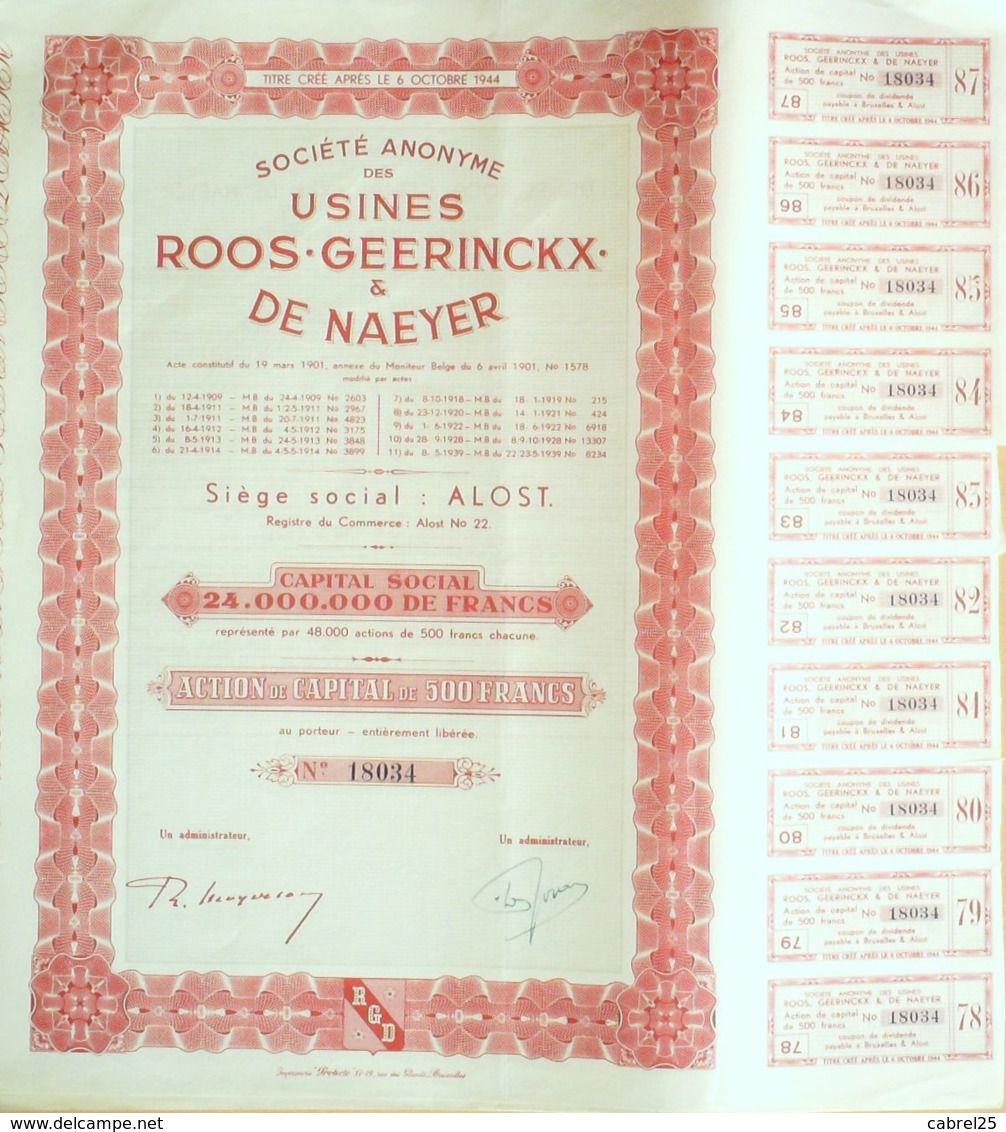 TITRE CRÉÉ APRÈS LE 6 OCTOBRE 1944
SOCIÉTÉ ANONYME
DES
USINES
ROOS·GEERINCKX·
&
DE NAEYER
Acte constitutif du 19 mars 1901, annexe du Moniteur Belge du 6 avril 1901, No 1578
modifié par actes
1) du 12-4-1909 — M.B du 24-4-1909 No 2603
2) du 18-4-1911 — M.B du 1/2-5-1911 No 2967
3) du 1-7-1911 — M.B du 20-7-1911 No 4823
4) du 16-4-1912 — M.B du 4-5-1912 No 3175
5) du 8-5-1913 — M.B du 24-5-1913 No 3848
6) du 21-4-1914 — M.B du 4/5-5-1914 No 3899
7) du 8-10-1918 — M.B du 18- 1-1919 No 215
8) du 23-12-1920 — M.B du 14- 1-1921 No 424
9) du 1- 6-1922 — M.B du 18- 6-1922 No 6918
10) du 28- 9-1928 — M.B du 8/9-10-1928 No 13307
11) du 8- 5-1939 — M.B du 22/23-5-1939 No 8234
Siège social : ALOST.
Registre du Commerce : Alost No 22.
CAPITAL SOCIAL
24.000.000 DE FRANCS
représenté par 48.000 actions de 500 francs chacune.
ACTION DE CAPITAL DE 500 FRANCS
au porteur — entièrement libérée.
No 18034
Un administrateur,
Un administrateur,
RGD
Bruxelles
SOCIÉTÉ ANONYME DES USINES
ROOS, GEERINCKX & DE NAEYER
Action de capital No 18034
de 500 francs
87
coupon de dividende
payable à Bruxelles & Alost
87
TITRE CRÉÉ APRÈS LE 6 OCTOBRE 1944
SOCIÉTÉ ANONYME DES USINES
ROOS, GEERINCKX & DE NAEYER
Action de capital No 18034
de 500 francs
86
coupon de dividende
payable à Bruxelles & Alost
86
TITRE CRÉÉ APRÈS LE 6 OCTOBRE 1944
SOCIÉTÉ ANONYME DES USINES
ROOS, GEERINCKX & DE NAEYER
Action de capital No 18034
de 500 francs
85
coupon de dividende
payable à Bruxelles & Alost
85
TITRE CRÉÉ APRÈS LE 6 OCTOBRE 1944
SOCIÉTÉ ANONYME DES USINES
ROOS, GEERINCKX & DE NAEYER
Action de capital No 18034
de 500 francs
84
coupon de dividende
payable à Bruxelles & Alost
84
TITRE CRÉÉ APRÈS LE 6 OCTOBRE 1944
SOCIÉTÉ ANONYME DES USINES
ROOS, GEERINCKX & DE NAEYER
Action de capital No 18034
de 500 francs
83
coupon de dividende
payable à Bruxelles & Alost
83
TITRE CRÉÉ APRÈS LE 6 OCTOBRE 1944
SOCIÉTÉ ANONYME DES USINES
ROOS, GEERINCKX & DE NAEYER
Action de capital No 18034
de 500 francs
82
coupon de dividende
payable à Bruxelles & Alost
82
TITRE CRÉÉ APRÈS LE 6 OCTOBRE 1944
SOCIÉTÉ ANONYME DES USINES
ROOS, GEERINCKX & DE NAEYER
Action de capital No 18034
de 500 francs
81
coupon de dividende
payable à Bruxelles & Alost
81
TITRE CRÉÉ APRÈS LE 6 OCTOBRE 1944
SOCIÉTÉ ANONYME DES USINES
ROOS, GEERINCKX & DE NAEYER
Action de capital No 18034
de 500 francs
80
coupon de dividende
payable à Bruxelles & Alost
80
TITRE CRÉÉ APRÈS LE 6 OCTOBRE 1944
SOCIÉTÉ ANONYME DES USINES
ROOS, GEERINCKX & DE NAEYER
Action de capital No 18034
de 500 francs
79
coupon de dividende
payable à Bruxelles & Alost
79
TITRE CRÉÉ APRÈS LE 6 OCTOBRE 1944
SOCIÉTÉ ANONYME DES USINES
ROOS, GEERINCKX & DE NAEYER
Action de capital No 18034
de 500 francs
78
coupon de dividende
payable à Bruxelles & Alost
78
TITRE CRÉÉ APRÈS LE 6 OCTOBRE 1944
cabrel25